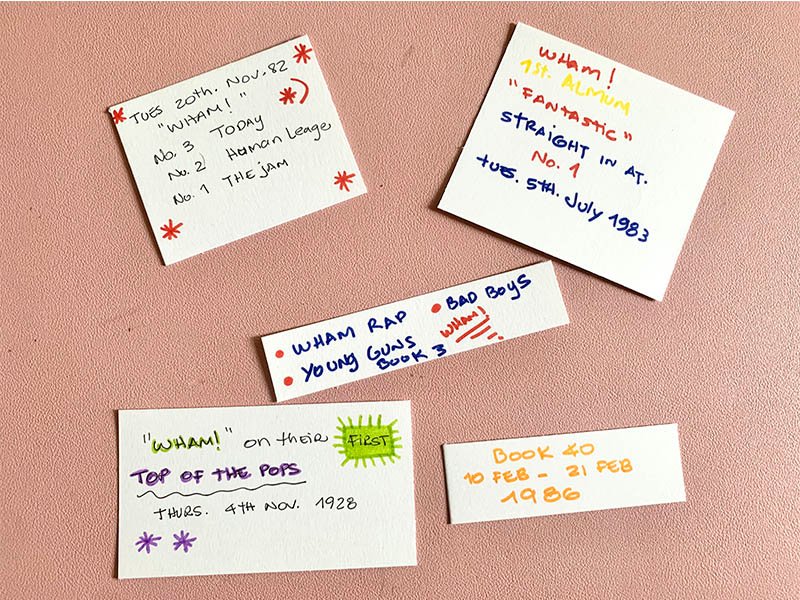 TUES 20th. NOV. 82
"WHAM!"
No. 3 TODAY
No. 2 Human Leage
No. 1 THE JAM
WHAM!
1st. ALMUM
"FANTASTIC"
STRAIGHT IN AT.
No. 1
tues. 5th. July 1983
WHAM RAP
BAD BOYS
YOUNG GUNS
WHAM!
BOOK 3
"WHAM!" on their FIRST
TOP OF THE POPS
THURS. 4TH NOV. 1928
BOOK 40
10 FEB - 21 FEB
1986